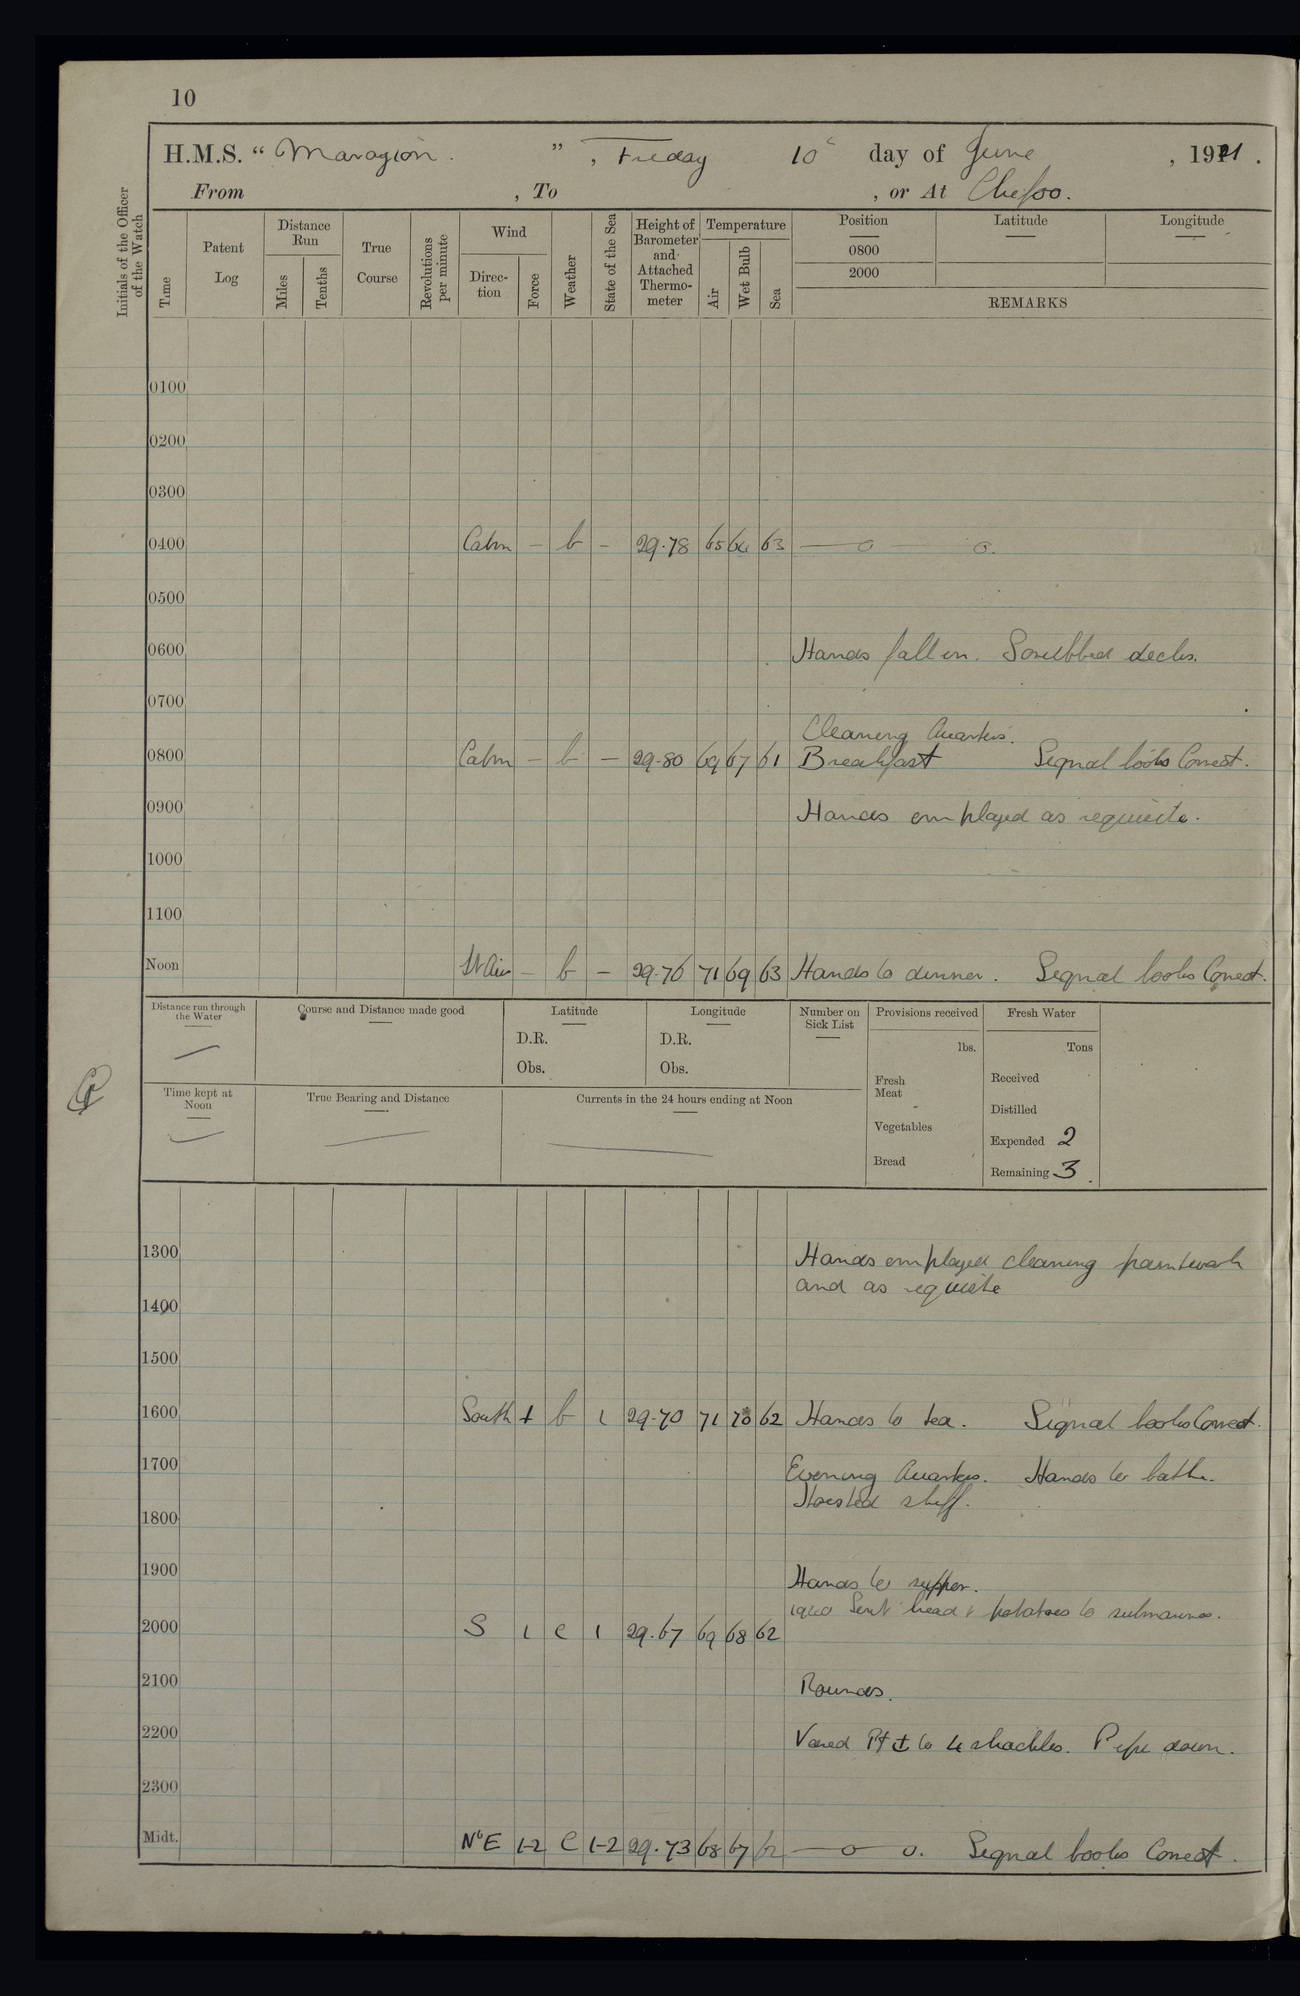 10
H.M.S. “ Marazion. ” , Friday 10 day of June , 1921.
From , To , or At Chefoo.
Initials of the Officer of the Watch
Time
Patent Log
Distance Run
Miles
Tenths
True Course
Revolutions per minute
Wind
Direc-tion
Force
Weather
State of the Sea
Height of Barometer and Attached Thermo-meter
Temperature
Air
Wet Bulb
Sea
Position
Latitude
Longitude
0800
2000
REMARKS
0100
0200
0300
0400 Calm – b – 29.78 65 64 63 — o — o.
0500
0600 Hands fall in. Scrubbed decks.
0700
Cleaning Quarters.
0800 Calm – b – 29.80 69 67 61 Breakfast Signal books Correct.
0900 Hands employed as requisite.
1000
1100
Noon Lt Airs – b – 29.76 71 69 63 Hands to dinner. Signal books Correct.
Distance run through the Water
Course and Distance made good
Latitude
D.R.
Obs.
Longitude
D.R.
Obs.
Number on Sick List
Provisions received
lbs.
Fresh Meat
Vegetables
Bread
Fresh Water
Tons
Received
Distilled
Expended 2
Remaining 3
Time kept at Noon
True Bearing and Distance
Currents in the 24 hours ending at Noon
1300 Hands employed cleaning paintwork
and as requisite
1400
1500
1600 South 1 b 1 29.70 71 70 62 Hands to tea. Signal books Correct.
1700 Evening Quarters. Hands to bathe.
Hoisted skiff.
1800
1900 Hands to supper.
1940 Sent bread & potatoes to submarines.
2000 S 1 c 1 29.67 69 68 62
2100 Rounds.
2200 Veered Pt ⚓ to 4 shackles. Pipe down.
2300
Midt. N'E 1-2 C 1-2 29.73 68 67 62 — o o. Signal books Correct.